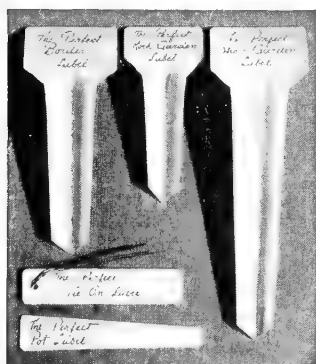 The Perfect
Border
Label
The Perfect
Rock Garden
Label
Perfect
Garden
Label
The Perfect
Tie On Label
The Perfect
Pot Label